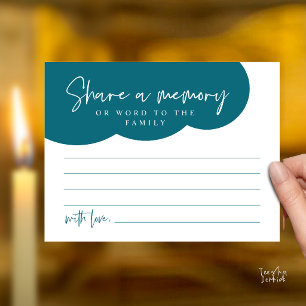 Share a memory
OR WORD TO THE
FAMILY
with love,